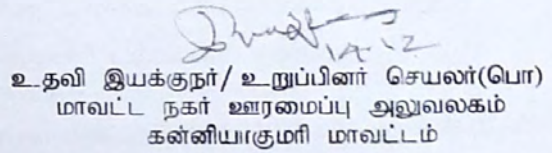 14.12
உதவி இயக்குநர்/ உறுப்பினர் செயலர்(பொ)
மாவட்ட நகர் ஊரமைப்பு அலுவலகம்
கன்னியாகுமரி மாவட்டம்